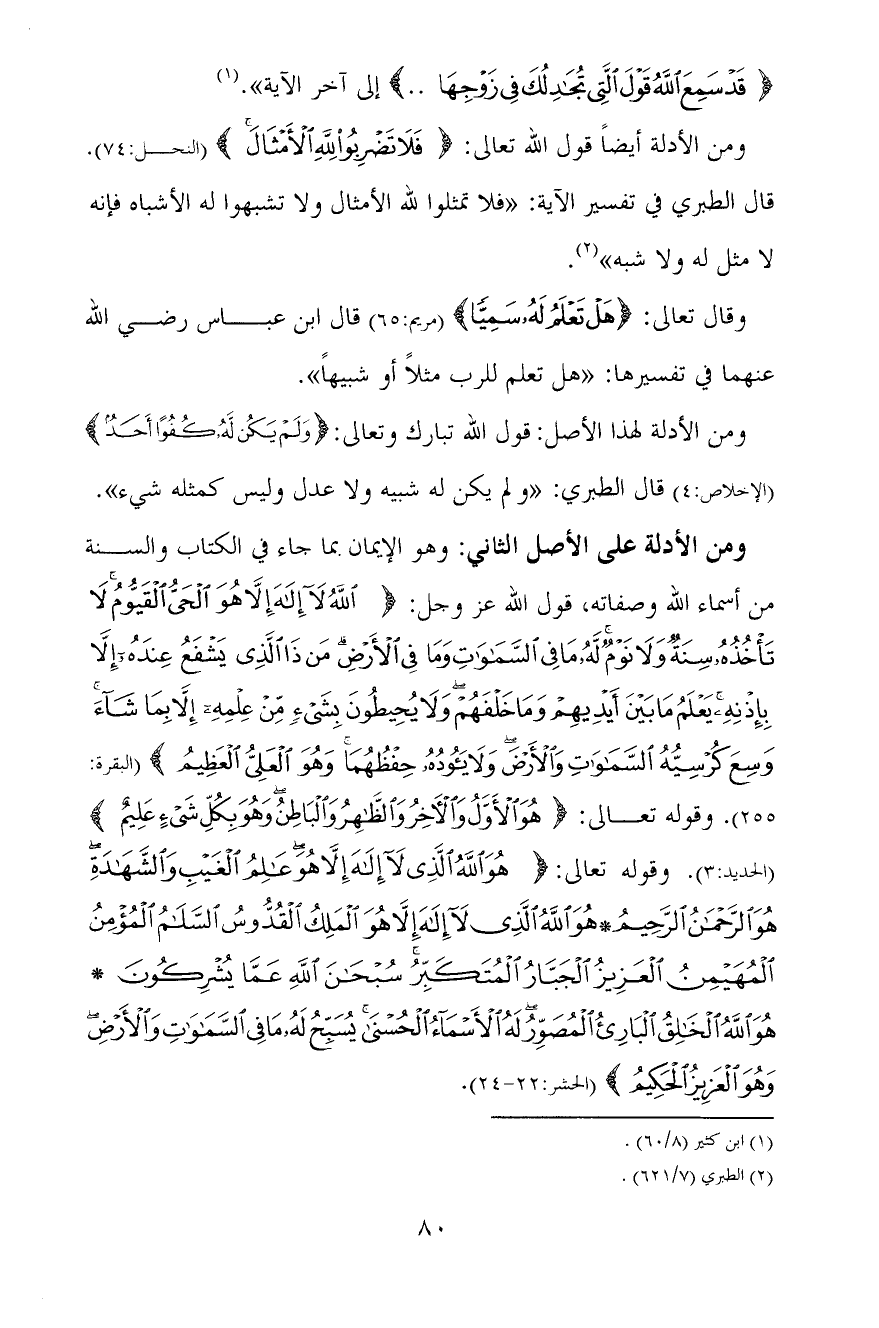 ﴿ قَدْ سَمِعَ ٱللَّهُ قَوْلَ ٱلَّتِى تُجَٰدِلُكَ فِى زَوْجِهَا ..﴾ إلى آخر الآية».(١)
ومن الأدلة أيضاً قول الله تعالى: ﴿ فَلَا تَضْرِبُوا۟ لِلَّهِ ٱلْأَمْثَالَ ۚ ﴾ (النحل:٧٤).
قال الطبري في تفسير الآية: «فلا تمثلوا لله الأمثال ولا تشبهوا له الأشباه فإنه
لا مثل له ولا شبه»(٢).
وقال تعالى: ﴿هَلْ تَعْلَمُ لَهُۥ سَمِيًّا﴾ (مريم:٦٥) قال ابن عباس رضي الله
عنهما في تفسيرها: «هل تعلم للرب مثلاً أو شبيهاً».
ومن الأدلة لهذا الأصل: قول الله تبارك وتعالى: ﴿وَلَمْ يَكُن لَّهُۥ كُفُوًا أَحَدٌۢ﴾
(الإخلاص:٤) قال الطبري: «و لم يكن له شبيه ولا عدل وليس كمثله شيء».
ومن الأدلة على الأصل الثاني: وهو الإيمان بما جاء في الكتاب والسنة
من أسماء الله وصفاته، قول الله عز وجل: ﴿ ٱللَّهُ لَآ إِلَٰهَ إِلَّا هُوَ ٱلْحَىُّ ٱلْقَيُّومُ ۚ لَا
تَأْخُذُهُۥ سِنَةٌ وَلَا نَوْمٌ ۚ لَّهُۥ مَا فِى ٱلسَّمَٰوَٰتِ وَمَا فِى ٱلْأَرْضِ ۗ مَن ذَا ٱلَّذِى يَشْفَعُ عِندَهُۥٓ إِلَّا
بِإِذْنِهِۦ ۚ يَعْلَمُ مَا بَيْنَ أَيْدِيهِمْ وَمَا خَلْفَهُمْ ۖ وَلَا يُحِيطُونَ بِشَىْءٍ مِّنْ عِلْمِهِۦٓ إِلَّا بِمَا شَآءَ ۚ
وَسِعَ كُرْسِيُّهُ ٱلسَّمَٰوَٰتِ وَٱلْأَرْضَ ۖ وَلَا يَـُٔودُهُۥ حِفْظُهُمَا ۚ وَهُوَ ٱلْعَلِىُّ ٱلْعَظِيمُ ﴾ (البقرة:
٢٥٥). وقوله تعالى: ﴿ هُوَ ٱلْأَوَّلُ وَٱلْءَاخِرُ وَٱلظَّٰهِرُ وَٱلْبَاطِنُ ۖ وَهُوَ بِكُلِّ شَىْءٍ عَلِيمٌ ﴾
(الحديد:٣). وقوله تعالى: ﴿ هُوَ ٱللَّهُ ٱلَّذِى لَآ إِلَٰهَ إِلَّا هُوَ ۖ عَٰلِمُ ٱلْغَيْبِ وَٱلشَّهَٰدَةِ ۖ
هُوَ ٱلرَّحْمَٰنُ ٱلرَّحِيمُ * هُوَ ٱللَّهُ ٱلَّذِى لَآ إِلَٰهَ إِلَّا هُوَ ٱلْمَلِكُ ٱلْقُدُّوسُ ٱلسَّلَٰمُ ٱلْمُؤْمِنُ
ٱلْمُهَيْمِنُ ٱلْعَزِيزُ ٱلْجَبَّارُ ٱلْمُتَكَبِّرُ ۚ سُبْحَٰنَ ٱللَّهِ عَمَّا يُشْرِكُونَ *
هُوَ ٱللَّهُ ٱلْخَٰلِقُ ٱلْبَارِئُ ٱلْمُصَوِّرُ ۖ لَهُ ٱلْأَسْمَآءُ ٱلْحُسْنَىٰ ۚ يُسَبِّحُ لَهُۥ مَا فِى ٱلسَّمَٰوَٰتِ وَٱلْأَرْضِ ۖ
وَهُوَ ٱلْعَزِيزُ ٱلْحَكِيمُ ﴾ (الحشر:٢٢-٢٤).
(١) ابن كثير (٦٠/٨) .
(٢) الطبري (٦٢١/٧) .
٨٠